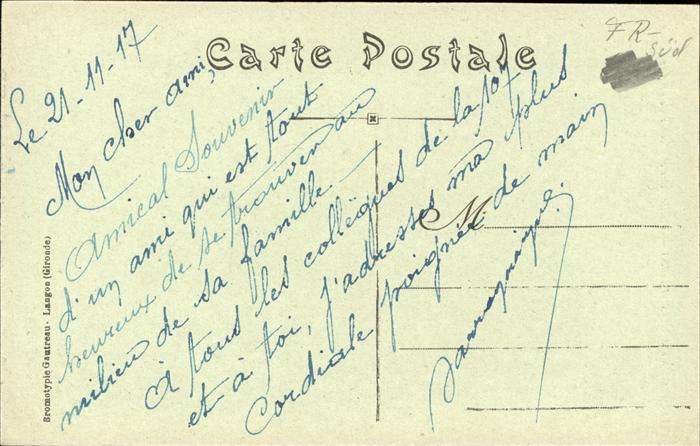 FR-
süd
Carte Postale
M
Bromotypie Gautreau. - Langon (Gironde)
Le 21-11-17
Mon cher ami,
Amical Souvenir
d'un ami qui est tout
heureux de se trouver au
milieu de sa famille -
à tous les collègues de la 107
et à toi, j'adresse ma plus
cordiale poignée de main